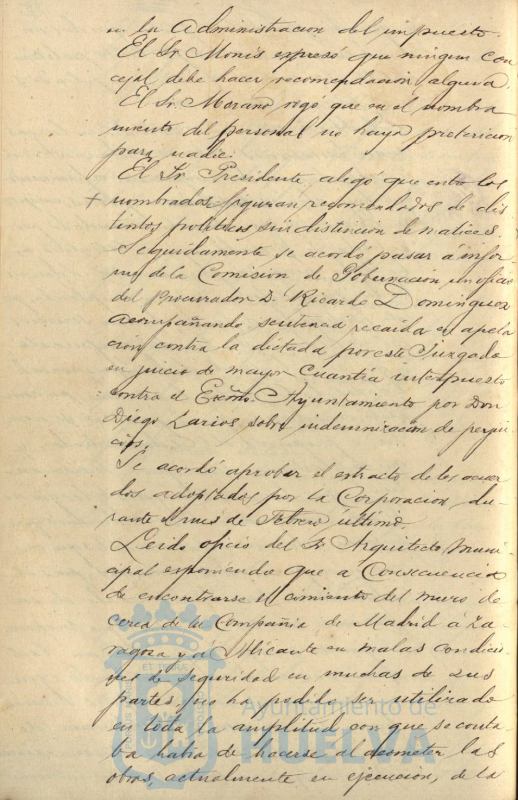 en la Administracion del impuesto.
El Sr. Monis expresó que ningun con
cejal debe hacer recomendación alguna.
El Sr. Morano rogó que en el nombra
miento del personal no haya pretericion
para nadie.
El Sr. Presidente, alegó que entre los
+ nombrados figuran recomendados de dis
tintos politicos sin distincion de matices.
Seguidamente se acordó pasar á infor
me de la Comision de Gobernación un oficio
del Procurador D. Ricardo Dominguez
acompañando sentencia recaida en apela
cion contra la dictada por este Juzgado
en juicio de mayor cuantía interpuesto
contra el Excmo. Ayuntamiento por Don
Diego Larios sobre indemnización de perjui
cios.
Se acordó aprobar el extracto de los acuer
dos adoptados por la Corporacion du
rante el mes de Febrero último.
Leido oficio del Sr. Arquitecto Muni
cipal exponiendo que a consecuencia
de encontrarse el cimiento del muro de
cerca de la Compañia de Madrid á Za
ragoza y á Alicante en malas condicio
nes de seguridad en muchas de sus
partes, no ha podido ser utilizado
en toda la amplitud con que se conta
ba habia de hacerse al acometer las
obras, actualmente en ejecución, de la
Ayuntamiento de
HUELVA